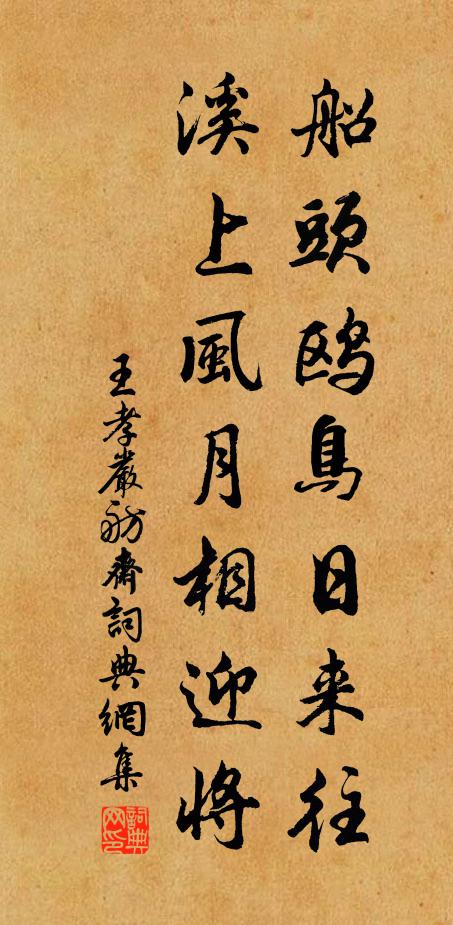 船頭鸥鳥日来往
溪上風月相迎將
王孝嚴舫齋詞典網集
詞典网印